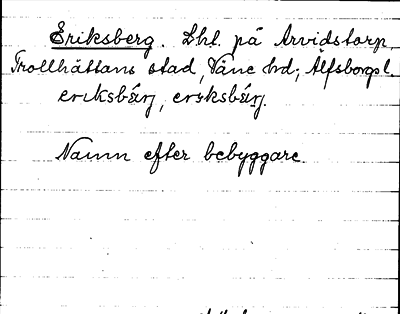 Eriksberg. Lht. på Arvidstorp
Trollhättans stad, Väne hd; Älfsborgs l.
eriksbärj, eriksbärj.
Namn efter bebyggare.